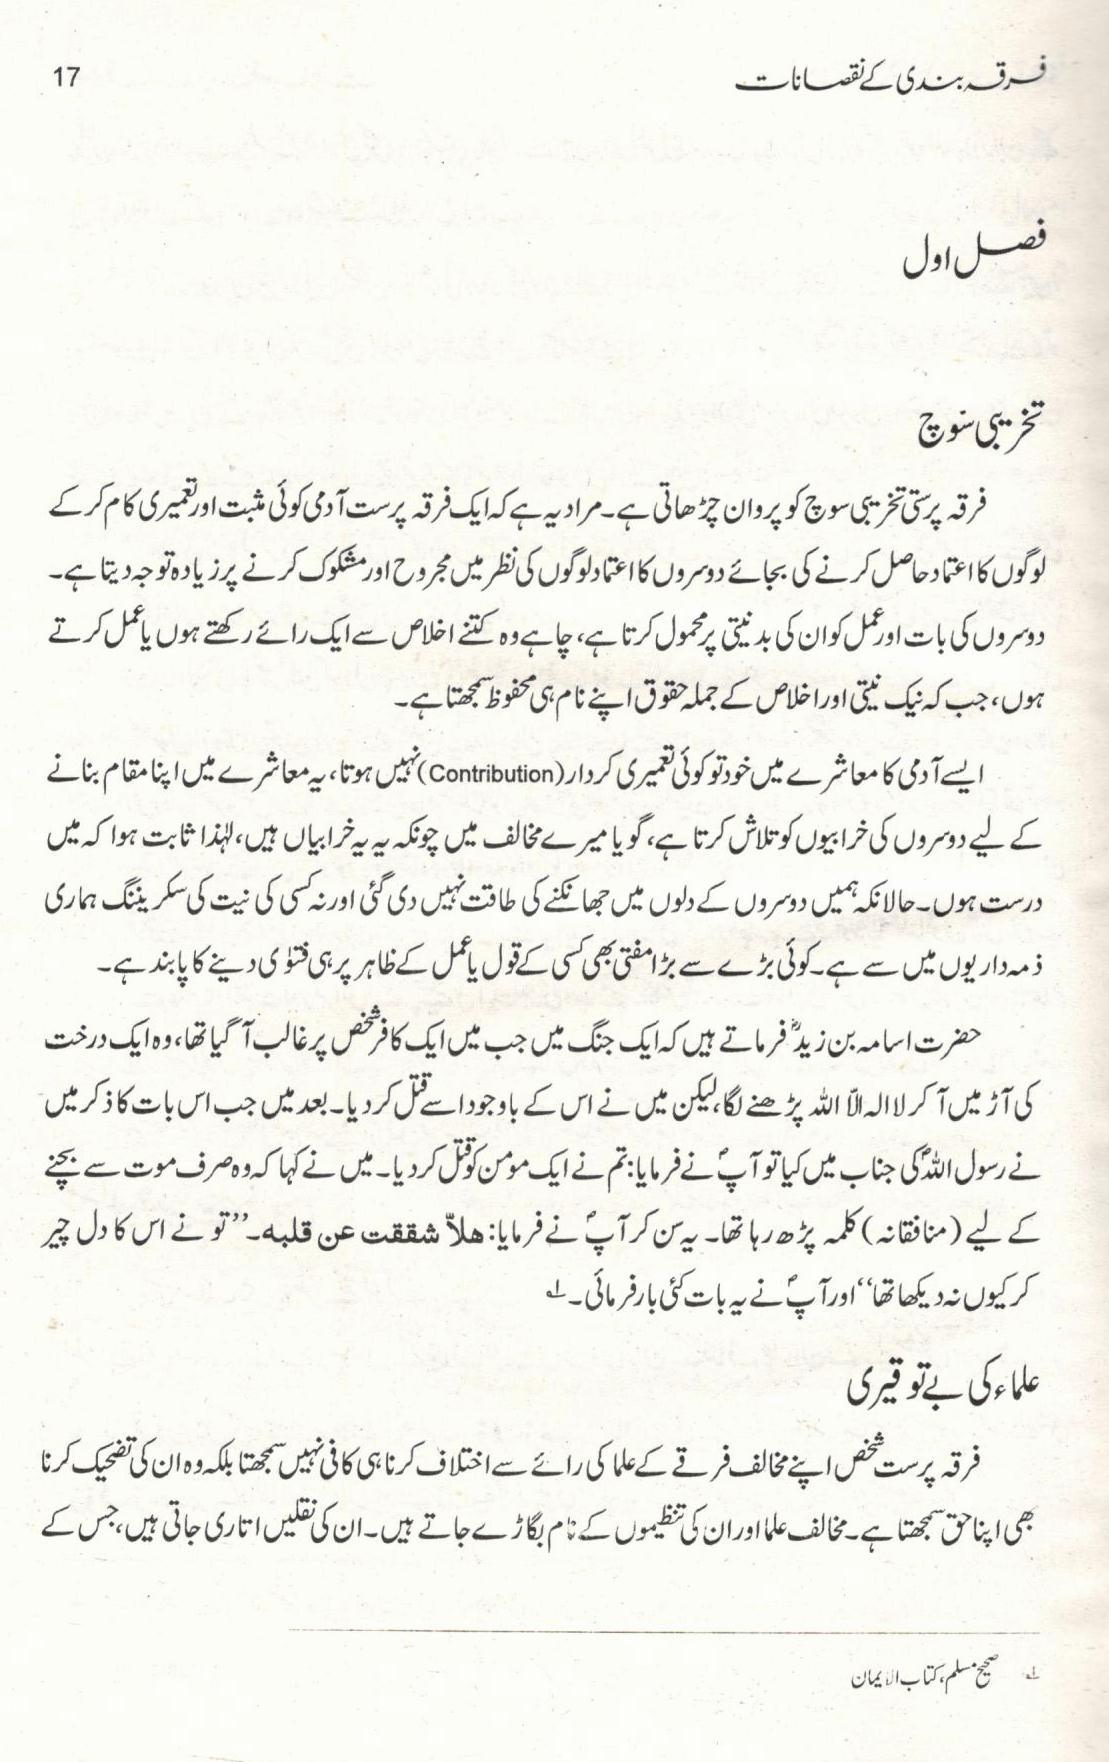 فرقہ بندی کے نقصانات 17
فصل اول
تخریبی سوچ
فرقہ پرستی تخریبی سوچ کو پروان چڑھاتی ہے۔ مراد یہ ہے کہ ایک فرقہ پرست آدمی کوئی مثبت اور تعمیری کام کر کے
لوگوں کا اعتماد حاصل کرنے کی بجائے دوسروں کا اعتماد لوگوں کی نظر میں مجروح اور مشکوک کرنے پر زیادہ توجہ دیتا ہے۔
دوسروں کی بات اور عمل کو ان کی بدنیتی پر محمول کرتا ہے، چاہے وہ کتنے اخلاص سے ایک رائے رکھتے ہوں یا عمل کرتے
ہوں، جب کہ نیک نیتی اور اخلاص کے جملہ حقوق اپنے نام ہی محفوظ سمجھتا ہے۔
ایسے آدمی کا معاشرے میں خود تو کوئی تعمیری کردار (Contribution) نہیں ہوتا، یہ معاشرے میں اپنا مقام بنانے
کے لیے دوسروں کی خرابیوں کو تلاش کرتا ہے، گویا میرے مخالف میں چونکہ یہ یہ خرابیاں ہیں، لہٰذا ثابت ہوا کہ میں
درست ہوں۔ حالانکہ ہمیں دوسروں کے دلوں میں جھانکنے کی طاقت نہیں دی گئی اور نہ کسی کی نیت کی سکریننگ ہماری
ذمہ داریوں میں سے ہے۔ کوئی بڑے سے بڑا مفتی بھی کسی کے قول یا عمل کے ظاہر پر ہی فتوٰی دینے کا پابند ہے۔
حضرت اسامہ بن زیدؓ فرماتے ہیں کہ ایک جنگ میں جب میں ایک کافر شخص پر غالب آ گیا تھا، وہ ایک درخت
کی آڑ میں آ کر لا الہ الّا اللہ پڑھنے لگا، لیکن میں نے اس کے باوجود اسے قتل کر دیا۔ بعد میں جب اس بات کا ذکر میں
نے رسول اللہؐ کی جناب میں کیا تو آپؐ نے فرمایا: تم نے ایک مومن کو قتل کر دیا۔ میں نے کہا کہ وہ صرف موت سے بچنے
کے لیے (منافقانہ) کلمہ پڑھ رہا تھا۔ یہ سن کر آپؐ نے فرمایا: هلاّ شققت عن قلبه۔ ’’تو نے اس کا دل چیر
کر کیوں نہ دیکھا تھا‘‘ اور آپؐ نے یہ بات کئی بار فرمائی۔ ۱؎
علماء کی بے توقیری
فرقہ پرست شخص اپنے مخالف فرقے کے علما کی رائے سے اختلاف کرنا ہی کافی نہیں سمجھتا بلکہ وہ ان کی تضحیک کرنا
بھی اپنا حق سمجھتا ہے۔ مخالف علما اور ان کی تنظیموں کے نام بگاڑے جاتے ہیں۔ ان کی نقلیں اتاری جاتی ہیں، جس کے
۱؎ صحیح مسلم، کتاب الایمان